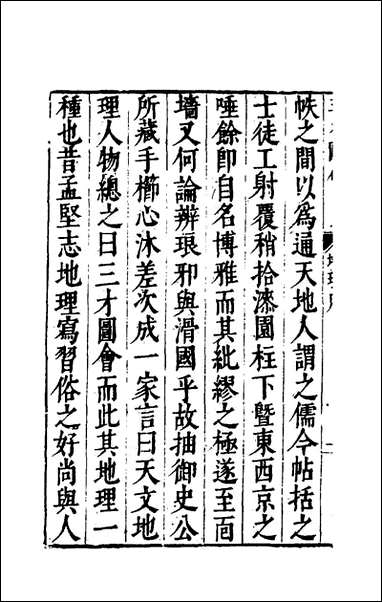 帙之間以為通天地人謂之儒今帖括之
士徒工射覆稍拾漆園柱下暨東西京之
唾餘卽自名博雅而其紕繆之極遂至面
墻又何論辨琅邪與滑國乎故抽御史公
所藏手櫛心沐差次成一家言曰天文地
理人物總之曰三才圖會而此其地理一
種也昔孟堅志地理寫習俗之好尚與人